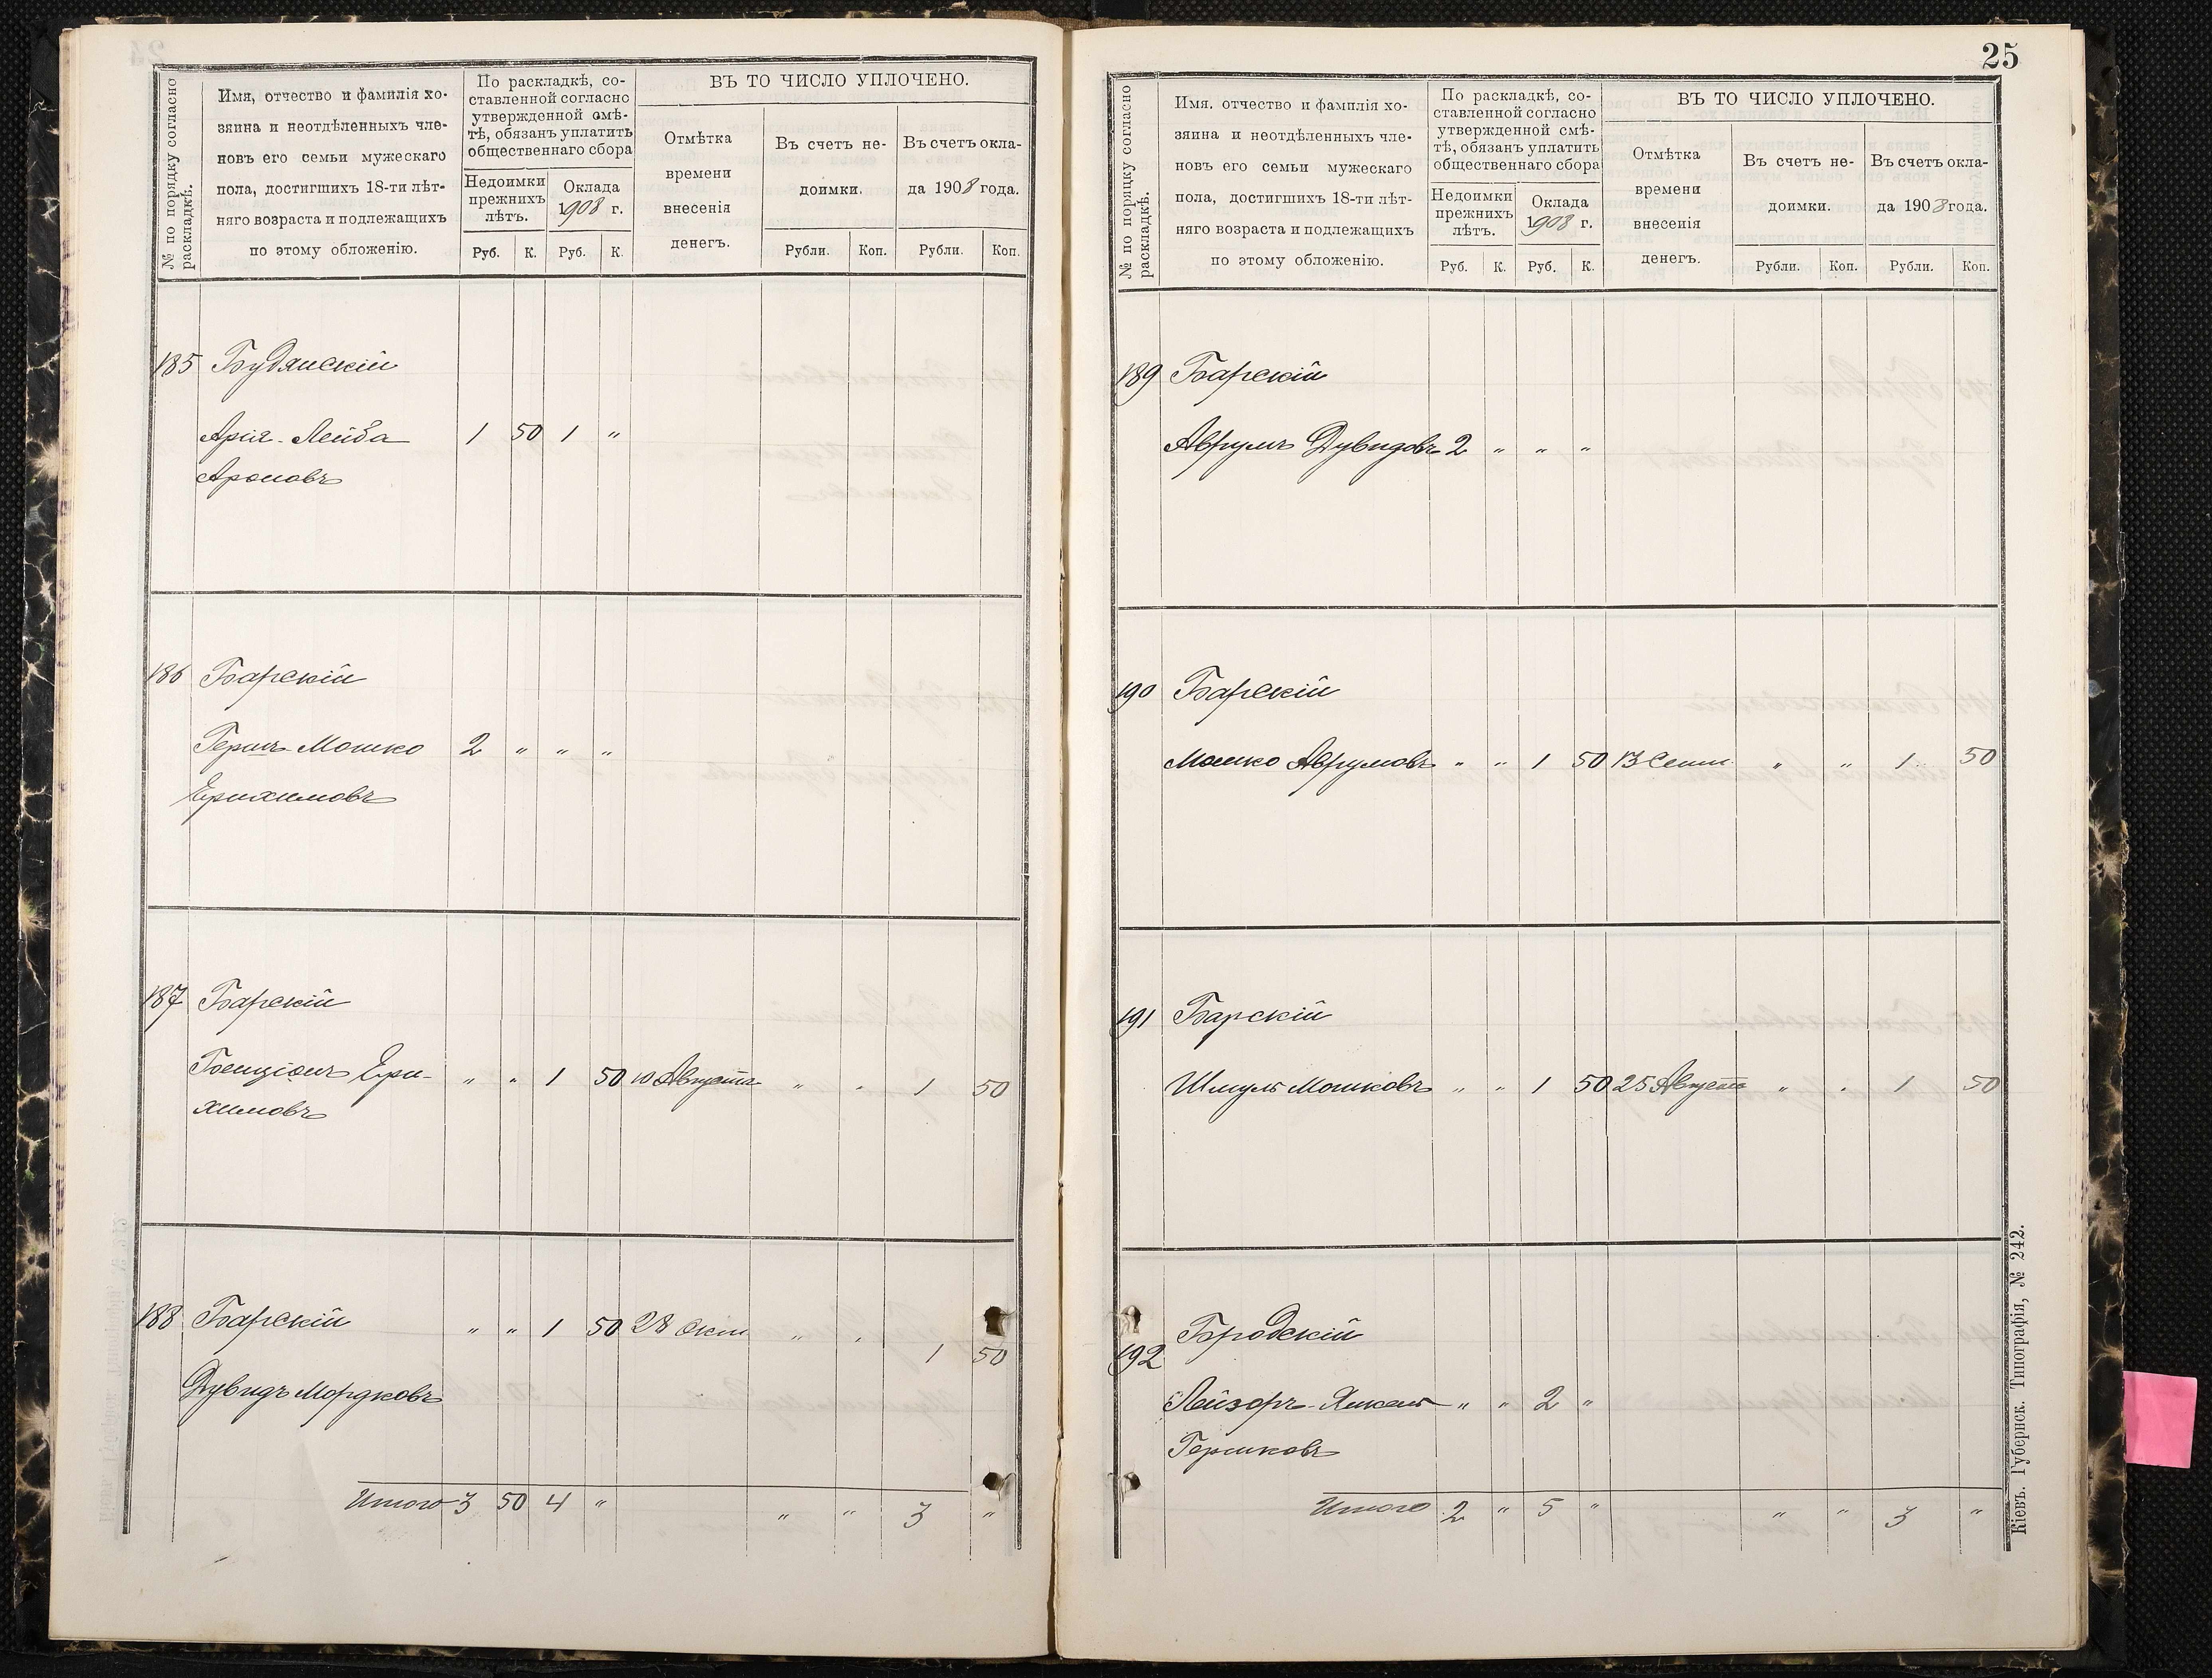 № по порядку согласно раскладкѣ.
Имя, отчество и фамилія хо-
зяина и неотдѣленныхъ чле-
новъ его семьи мужескаго
пола, достигшихъ 18-ти лѣт-
няго возраста и подлежащихъ
по этому обложенію.
По раскладкѣ, со-
ставленной согласно
утвержденной смѣ-
тѣ, обязанъ уплатить
общественнаго сбора
Недоимки
прежнихъ
лѣтъ.
Оклада
1908 г.
Руб. К. Руб. К.
ВЪ ТО ЧИСЛО УПЛОЧЕНО.
Отмѣтка
времени
внесенія
денегъ.
Въ счетъ не-
доимки.
Рубли. Коп.
Въ счетъ окла-
да 1908 года.
Рубли. Коп.
185 Будянскій
Арія-Лейба 1 50 1 "
Ароновъ
186 Барскій
Гершъ-Мошко 2 " " "
Ерихимовъ
187 Барскій
Бенціонъ Ери- " " 1 50 10 Августа " " 1 50
химовъ
188 Барскій " " 1 50 28 Окт " " 1 50
Дувидъ Мордковъ
Итого 3 50 4 " " " 3 "
25
№ по порядку согласно раскладкѣ.
Имя. отчество и фамилія хо-
зяина и неотдѣленныхъ чле-
новъ его семьи мужескаго
пола, достигшихъ 18-ти лѣт-
няго возраста и подлежащихъ
по этому обложенію.
По раскладкѣ, со-
ставленной согласно
утвержденной смѣ-
тѣ, обязанъ уплатить
общественнаго сбора
Недоимки
прежнихъ
лѣтъ.
Оклада
1908 г.
Руб. К. Руб. К.
ВЪ ТО ЧИСЛО УПЛОЧЕНО.
Отмѣтка
времени
внесенія
денегъ.
Въ счетъ не-
доимки.
Рубли. Коп.
Въ счетъ окла-
да 1908 года.
Рубли. Коп.
189 Барскій
Аврумъ Дувидовъ 2 " " "
190 Барскій
Мошко Аврумовъ " " 1 50 13 Сент " " 1 50
191 Барскій
Шмуль Мошковъ " " 1 50 25 Августа " " 1 50
192 Бродскій
Лейзоръ-Янкель " " 2 "
Гершковъ
Итого 2 " 5 " " " 3 "
Кіевъ. Губернск. Типографія, № 242.